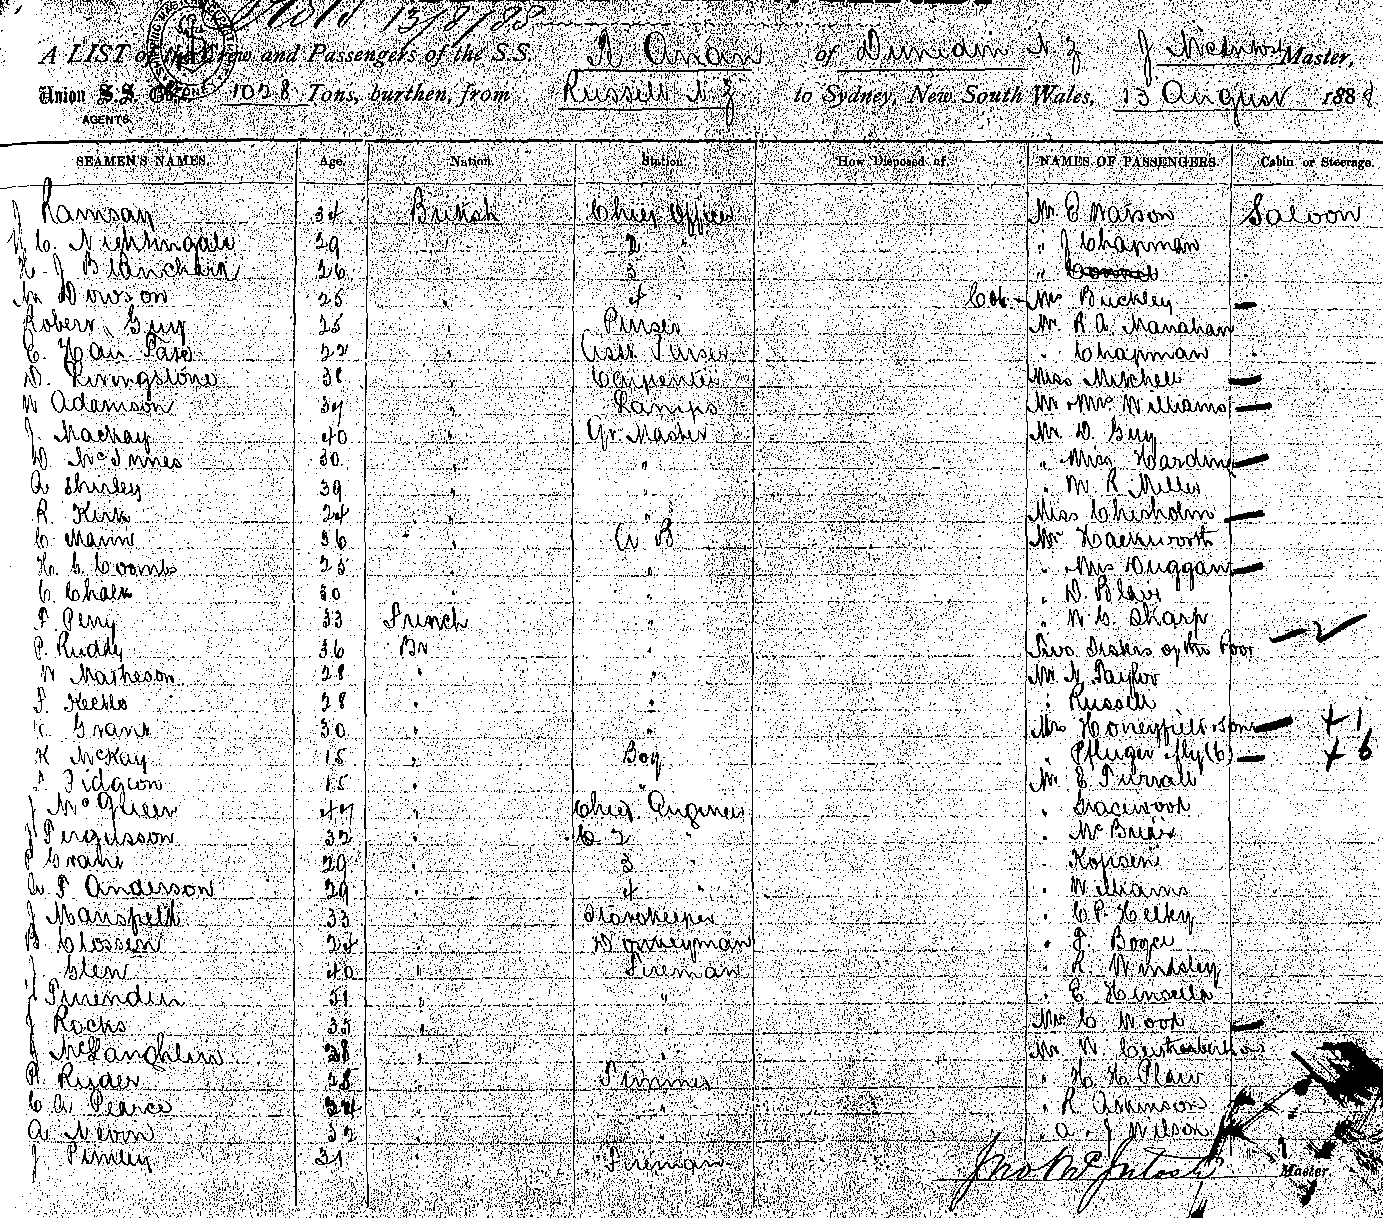 13/8/88
A LIST of the Crew and Passengers of the S.S. of Dunedin N.Z J McIntosh Master,
Union S.S. Co. 1028 Tons, burthen, from Russell N.Z to Sydney, New South Wales, 13 August 1888
AGENTS.
SEAMEN'S NAMES. Age. Nation. Station. How Disposed of. NAMES OF PASSENGERS. Cabin or Steerage.
J Ramsay 34 British Chief Officer Mr E Watson Saloon
C. Nightingale 29 " 2 " " J Chapman
H. J Blanchard 26 " 3 "
Dowson 25 " 4 " Mrs Buckley
Robert Guy 25 " Purser Mr. R A. Manahan
22 " Asst Purser " Chapman
D. Livingstone 38 " Carpenter Miss Mitchell
W Adamson 37 " Lamps Mr & Mrs Williams
J. Mackay 40 " Qr. Master Mr. D. Guy
D. McInnes 30 " " " Miss Harding
A Shirley 39 " " " R Miller
R. Kirk 24 " " Miss Chisholm
C. Mann 36 " A B Mr Hackworth
H. C. Coombs 25 " " " Mrs Duggan
C Chalk 30 " " " D. Blair
F Perry 33 French " " W C. Sharp
P. Ruddy 36 Br " Two Sisters of the Poor 2
W Matheson 28 " Mr Taylor
28 " " Russell
Grant 30 " Mrs Honeyfield & Son +1
K McKay 15 " Boy " Pfluger fly (6) +6
Pidgeon 15 " " Mr E
J McQueen 47 " Chief Engineer " Gracewood
J Fergusson 32 " 2 " "
Crane 29 " 3 "
A F Anderson 29 " 4 " " Williams
J Mansfield 33 " Storekeeper " C P.
B. Clossen 24 Donkeyman " J.
J Glen 40 " Fireman " R
J 51 " " " E
J Rocks 35 " " Mr C Wood
J McLaughlin 38 " " Mr W
R. Ryder 28 Trimmer " H H
C A Pearce 34 " " " R Atkinson
A Nevin 32 " " " A. J Wilson
J 31 " Fireman
Jno McIntosh Master.